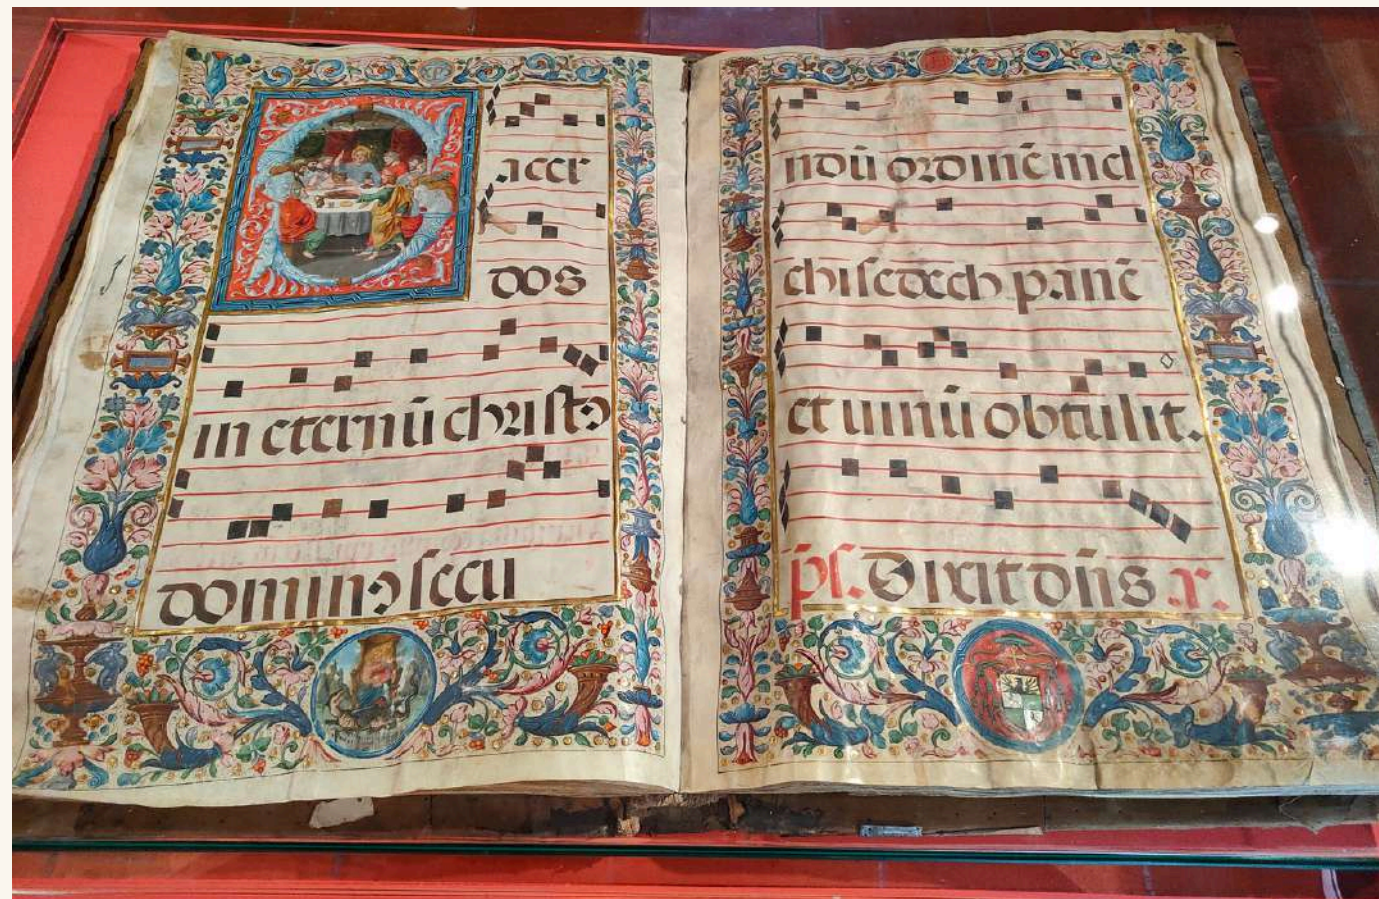 Sacer
dos
in eternū christꝰ
dominꝰ secu
ndū ordinē mel
chisedech panē
et uinū obtulit.
ps. Dixit dn̄s. x.